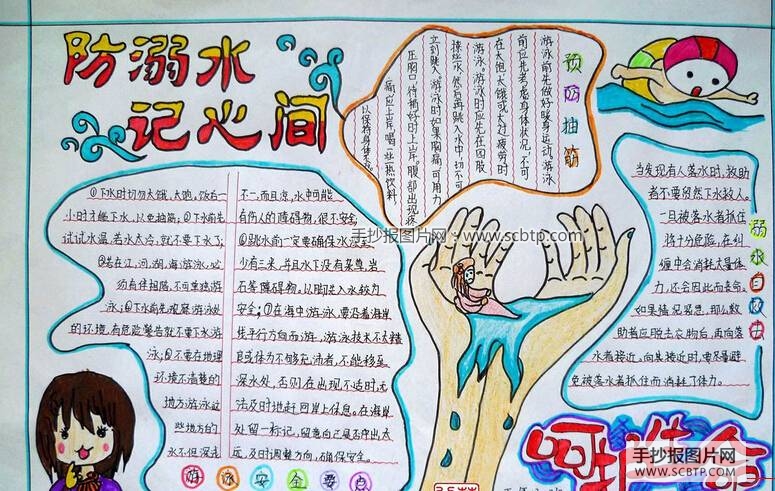 防溺水
记心间
预防抽筋
游泳前先做好暖身运动。游泳
前应先考虑身体状况,不可
在太饱太饿或太过疲劳时
游泳。游泳时应先在四肢
擦些水,然后再跳入水中,切不可
立刻跳入。游泳时如果胸痛,可用力
压胸口,待稍好时上岸。腹部出现疼
痛应上岸喝一些热饮料,
以保持身体
①下水时切勿太饿、太饱,饭后一
小时才能下水,以免抽筋;②下水前先
试试水温,若水太冷,就不要下水了;
③若在江、河、湖、海游泳,必
须有伴相陪,不可单独游
泳;④下水前先观察游泳处
的环境,有危险警告就不要下水游
泳;⑤不要在地理
环境不清楚的
地方游泳这
些地方的
水不但深浅
不一,而且凉,水中可能
有伤人的障碍物,很不安全
⑥跳水前一定要确保水深至
少有三米,并且水下没有杂草,岩
石等障碍物。以脚先入水较为
安全;⑦在海中游泳,要沿着海岸
线平行方向而游,游泳技术不太精
良或体力不够充沛者,不能移至
深水处,否则在出现不适时,无
法及时地赶回岸上休息。在海岸
处留一标记,留意自己是否漂出太
远,及时调整方向,确保安全。
游泳安全要点
溺水自救
当发现有人落水时,救助
者不要贸然下水救人。
一旦被落水者抓住
将十分危险,在纠
缠中会消耗大量体
力,还会因此而丧命。
如果情况紧急,那么救
助者应脱去衣物后,再向落
水者接近。向其接近时,要尽量避
免被落水者抓住而消耗了体力。
呵护生命
手抄报图片网：www.scbtp.com
手抄报图片网
WWW.SCBTP.COM